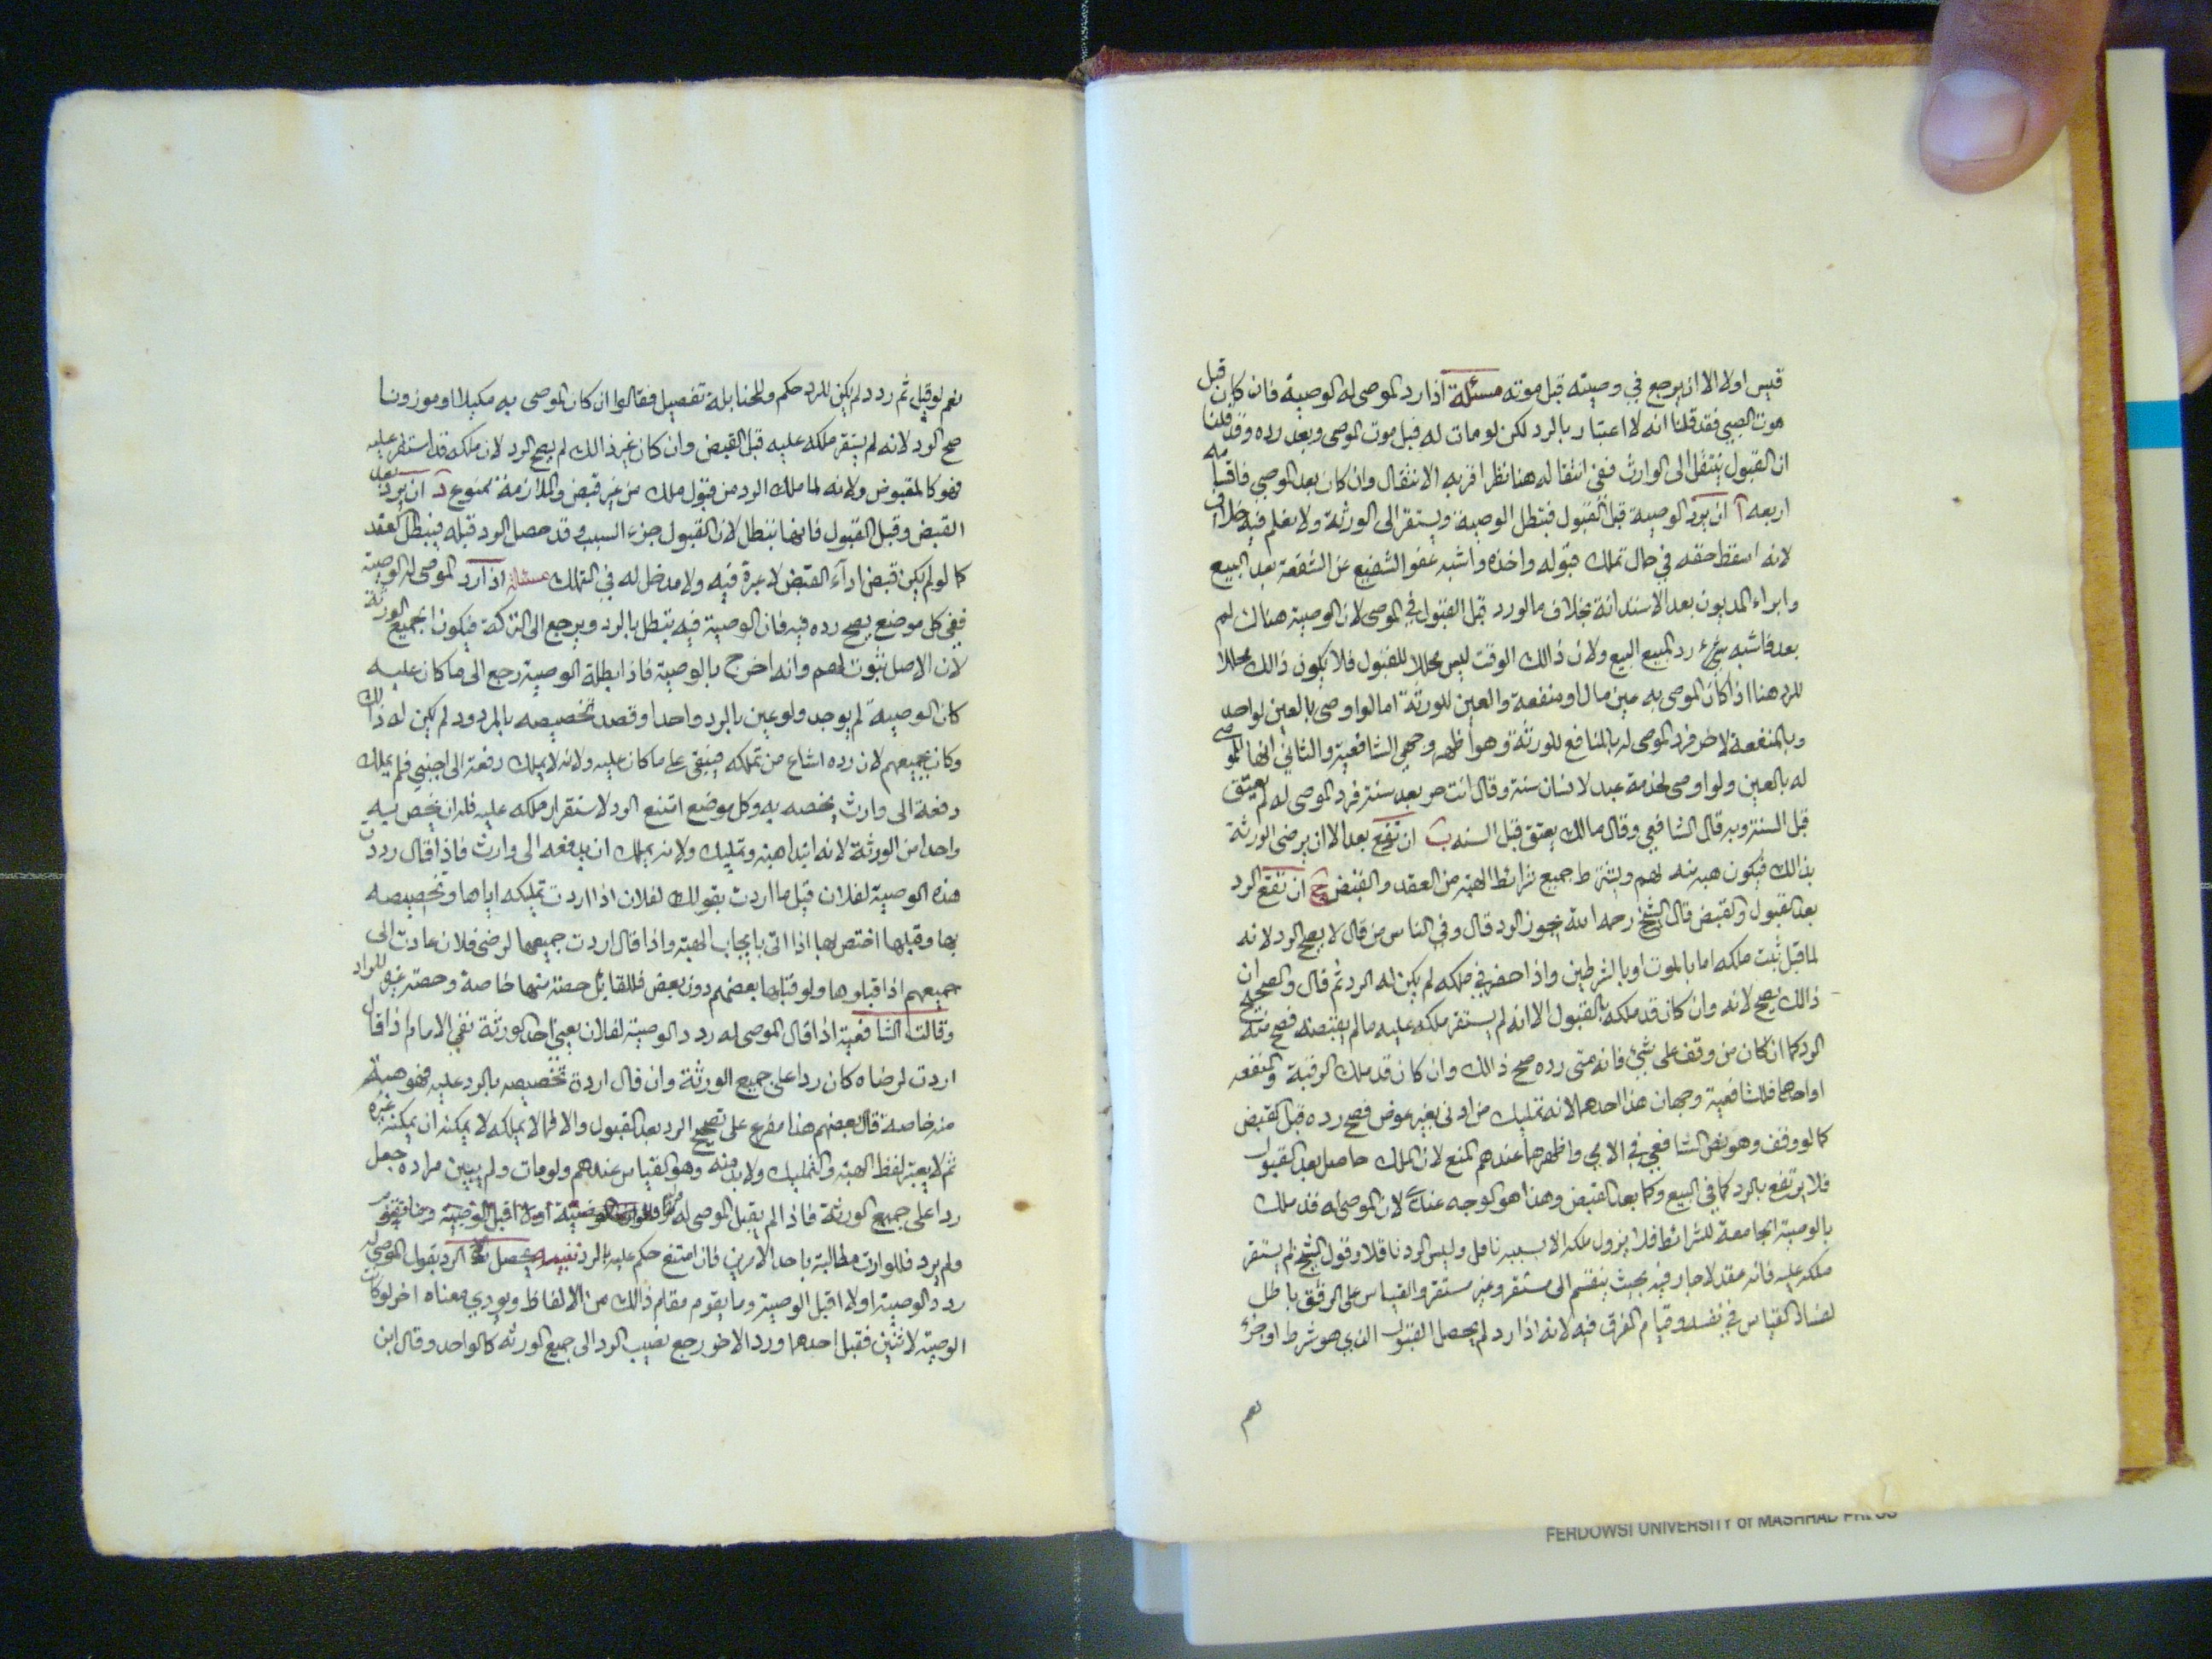 قيس اولا الا ان يرجع في وصيته قبل موته مسئلة اذا رد الموصى له الوصية فان كان قبل
موت الموصي فقد قلنا انه لا اعتبار بالرد لكن لو مات له قبل موت الموصى وبعد رده وقد قلنا
ان القبول ينتقل الى الوارث ففي انتقاله هنا نظر اقربه الانتقال وان كان بعد الموصي فاقسامه
اربعه آ ان يرد الوصية قبل القبول فتبطل الوصية ويستقر الى الورثة ولا نعلم فيه خلافا
لانه اسقط حقه في حال تملك قبوله واخذه واشبه عفو الشفيع عن الشفعة بعد البيع
وابراء المديون بعد الاستدانة بخلاف ما لو رد قبل القبول في الموصى لان الوصية هناك لم
بعد فاشبه رد المبيع البيع ولان ذالك الوقت ليس محلا للقبول فلا يكون ذالك محلا
للرد هنا اذا كان الموصى به عين مال او منفعة والعين للورثة اما لو اوصى بالعين لواحد
وبالمنفعة لاخر فرد الموصى له بالمنافع للورثة وهو اظهر وجهي الشافعية والثاني انها للموصى
له بالعين ولو اوصى لخدمة عبد لانسان سنة وقال انت حر بعد سنة فرد الموصى له لم يعتق
قبل السنة وبه قال الشافعي وقال مالك يعتق قبل السنه ب ان تقع بعد الا ان يرضى الورثة
بذالك فيكون هبة منه لهم ويشترط جميع شرائط الهبة من العقد والقبض ج ان تقع الرد
بعد القبول والقبض قال الشيخ رحمه الله يجوز الرد قال وفي الناس من قال لا يصح الرد لانه
لما قبل ثبت ملكه اما بالموت او بالشرطين واذا حصل في ملكه لم يكن له الرد ثم قال والصحيح ان
ذالك يصح لانه وان كان قد ملكه بالقبول الا انه لم يستقر ملكه عليه ما لم يقبضه فصح منه
الرد كما ان كان من وقف على شيئ فانه متى رده صح ذالك وان كان قد ملك الرقبة والمنفعه
او احدهما فللشافعية وجهان هذا احدهما لانه تمليك من ادنى بغير عوض فصح رده قبل القبض
كما لو وقف وهو نص الشافعي في الام واظهرهما عندهم المنع لان الملك حاصل بعد القبول
فلا يرتفع بالرد كما في البيع وكما بعد القبض وهذا هو الوجه عندي لان الموصى له قد ملك
بالوصية الجامعة للشرائط فلا يزول ملكه الا بسبب ناقل وليس الرد ناقلا وقول الشيخ لم يستقر
ملكه عليه فانه عقد لا خيار فيه بحيث ينقسم الى مستقر وغير مستقر والقياس على الوقف باطل
لفساد القياس في نفسه وقيام الفرق فيه لانه اذا رد لم يحصل القبول الذي هو شرط او جزء
نعم
نعم لو قبل ثم رد د لم يكن للرد حكم وللحنابلة تفصيل فقالوا ان كان الموصى به مكيلا او موزونا
صح الرد لانه لم يستقر ملكه عليه قبل القبض وان كان غير ذالك لم يصح الرد لان ملكه قد استقر عليه
فهو كالمقبوض ولانه لما ملك الرد من قبول ملك من غير قبض والملازمة ممنوع د ان يرد بعد
القبض وقبل القبول فانها تبطل لان القبول جزء السبب وقد حصل الرد قبله فيبطل العقد
كما لو لم يكن قبض اد آء القبض لا عبرة فيه ولا مدخل له في التملك مسئلة اذا رد الموصى له الوصية
ففي كل موضع يصح رده فيه فان الوصية فيه تبطل بالرد ويرجع الى التركة فيكون لجميع الورثة
لان الاصل ثبوت لهم وانه اخرج بالوصية فاذا بطلة الوصية رجع الى ما كان عليه
كان الوصية لم يوجد ولو عين بالرد واحدا وقصد تخصيصه بالمردود لم يكن له ذالك
وكان لجميعهم لان رده امتناع من تملكه فيبقى على ما كان عليه ولانه لا يملك دفعه الى اجنبي فلم يملك
دفعة الى وارث يخصه به وكل موضع امتنع الرد لاستقرار ملكه عليه فله ان يخص به
واحدا من الورثة لانه ابتدا هبة وتمليك ولانه يملك ان يدفعه الى وارث فاذا قال رددت
هذه الوصية لفلان قيل ما اردت بقولك لفلان اذا اردت تمليكه اياها وتخصيصه
بها وقبلها اختص بها اذا اتى بايجاب الهبة واذا قال اردت جميعها لرضى فلان عادت الى
جميعهم اذا قبلوها ولو قبلها بعضهم دون بعض فللقابل حصته منها خاصة وحصة غيره للواد
وقالت الشافعية اذا قال الموصى له رد د الوصية لفلان يعني احد الورثة نفي الامام اذا قال
اردت لرضاه كان ردا على جميع الورثة وان قال اردة تخصيصه بالرد عليه فهو هبة
منه خاصة قال بعضهم هذا مفرع على تصحيح الرد بعد القبول والا فما لا يملكه لا يمكنه ان يملكه غيره
ثم لا يعتبر لفظ الهبة والتمليك ولا بد منه وهو القياس عندهم ولو مات ولم يبين مراده جعل
ردا على جميع الورثة فاذا لم يقبل الموصى له
ولم يرد فللوارث مطالبته باحد الامرين فان امتنع حكم عليه بالرد تنبيه يحصل الرد بقول الموصى له
رد د الوصية او لا اقبل الوصية وما يقوم مقام ذالك من الالفاظ ويودي معناه اخر لو كانت
الوصية لاثنين فقبل احدهما ورد الاخر رجع نصيب الرد الى جميع الورثه كالواحد وقال ابن
FERDOWSI UNIVERSITY of MASHHAD PRESS